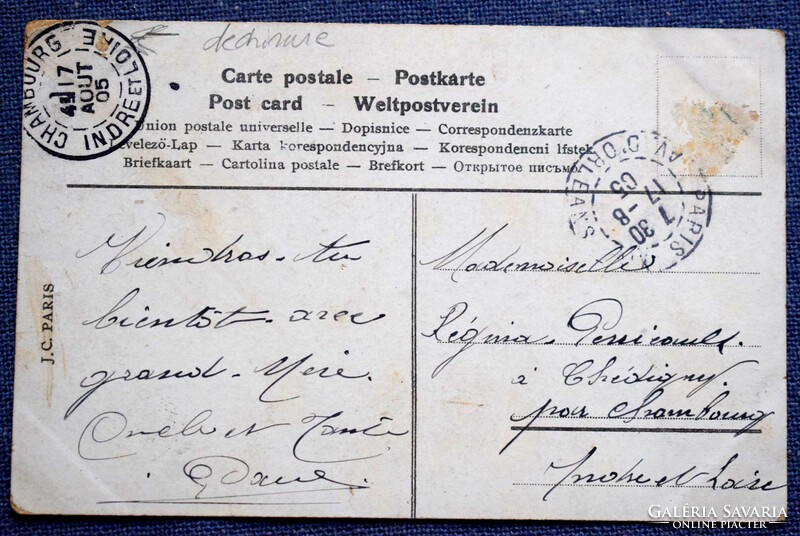 CHAMBOURG
INDRE ET LOIRE
17
AOUT
05
Carte postale – Postkarte
Post card – Weltpostverein
Union postale universelle – Dopisnice – Correspondenzkarte
evelező-Lap – Karta korespondencyjna – Korespondencni lfstek
Briefkaart – Cartolina postale – Brefkort – Открытое письмо
PARIS
AV. D'ORLEANS
7 30
17 -8
05
J.C. PARIS
Viendras-tu
bientôt avec
grand-Mère.
Oncle et Tante
Mademoiselle
Régina
à Chédigny.
par Chambourg
Indre et Loire
GALÉRIA SAVARIA
ONLINE PIACTÉR